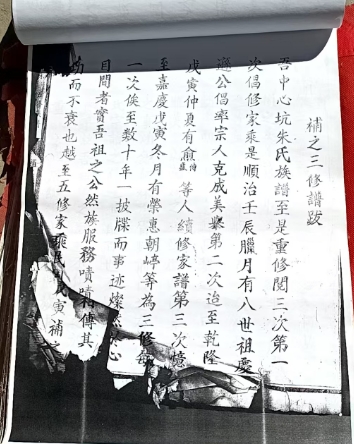 補之三修譜跋
吾中心坑朱氏族譜至是重修閱三次第一
次倡修家乘是順治壬辰臘月有八世祖慶
公倡率宗人克成美舉第二次迨至乾隆
戊寅仲夏有 等人續修家譜第三次憶
至嘉慶戊寅冬月有榮惠朝 等為三修每
一次俟至數十年一披牒而事迹燦然心
目間者實吾祖之公然族服務嘖嘖傳其
功而不衰也越至五修家乘 寅補之